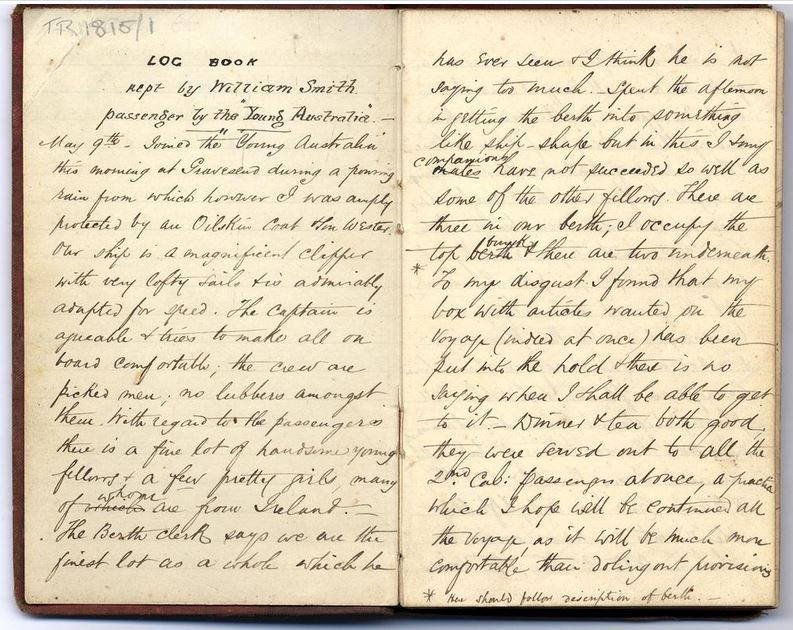 TR 1815/1
LOG BOOK
kept by William Smith
passenger by the "Young Australia". —
May 9th - Joined the "Young Australia"
this morning at Gravesend during a pouring
rain from which however I was amply
protected by an Oilskin Coat & Sou Wester.
Our ship is a magnificent clipper
with very lofty sails & is admirably
adapted for speed. The Captain is
agreeable & tries to make all on
board comfortable; the crew are
picked men; no lubbers amongst
them. With regard to the passengers
there is a fine lot of handsome young
fellows & a few pretty girls, many
of which whom are from Ireland. —
The Berth clerk says we are the
finest lot as a whole which he
has ever seen & I think he is not
saying too much. Spent the afternoon
in getting the berth into something
like ship-shape but in this I & my
mates companions have not succeeded so well as
some of the other fellows. There are
three in our berth; I occupy the
top berth bunk & there are two underneath.
* To my disgust I found that my
box with articles wanted on the
voyage (indeed at once) has been
put into the hold & there is no
saying when I shall be able to get
to it — Dinner & tea both good,
they were served out to all the
2nd Cab: passengers at once, a practice
which I hope will be continued all
the voyage, as it will be much more
comfortable than doling out provisions
* Here should follow description of berth. —